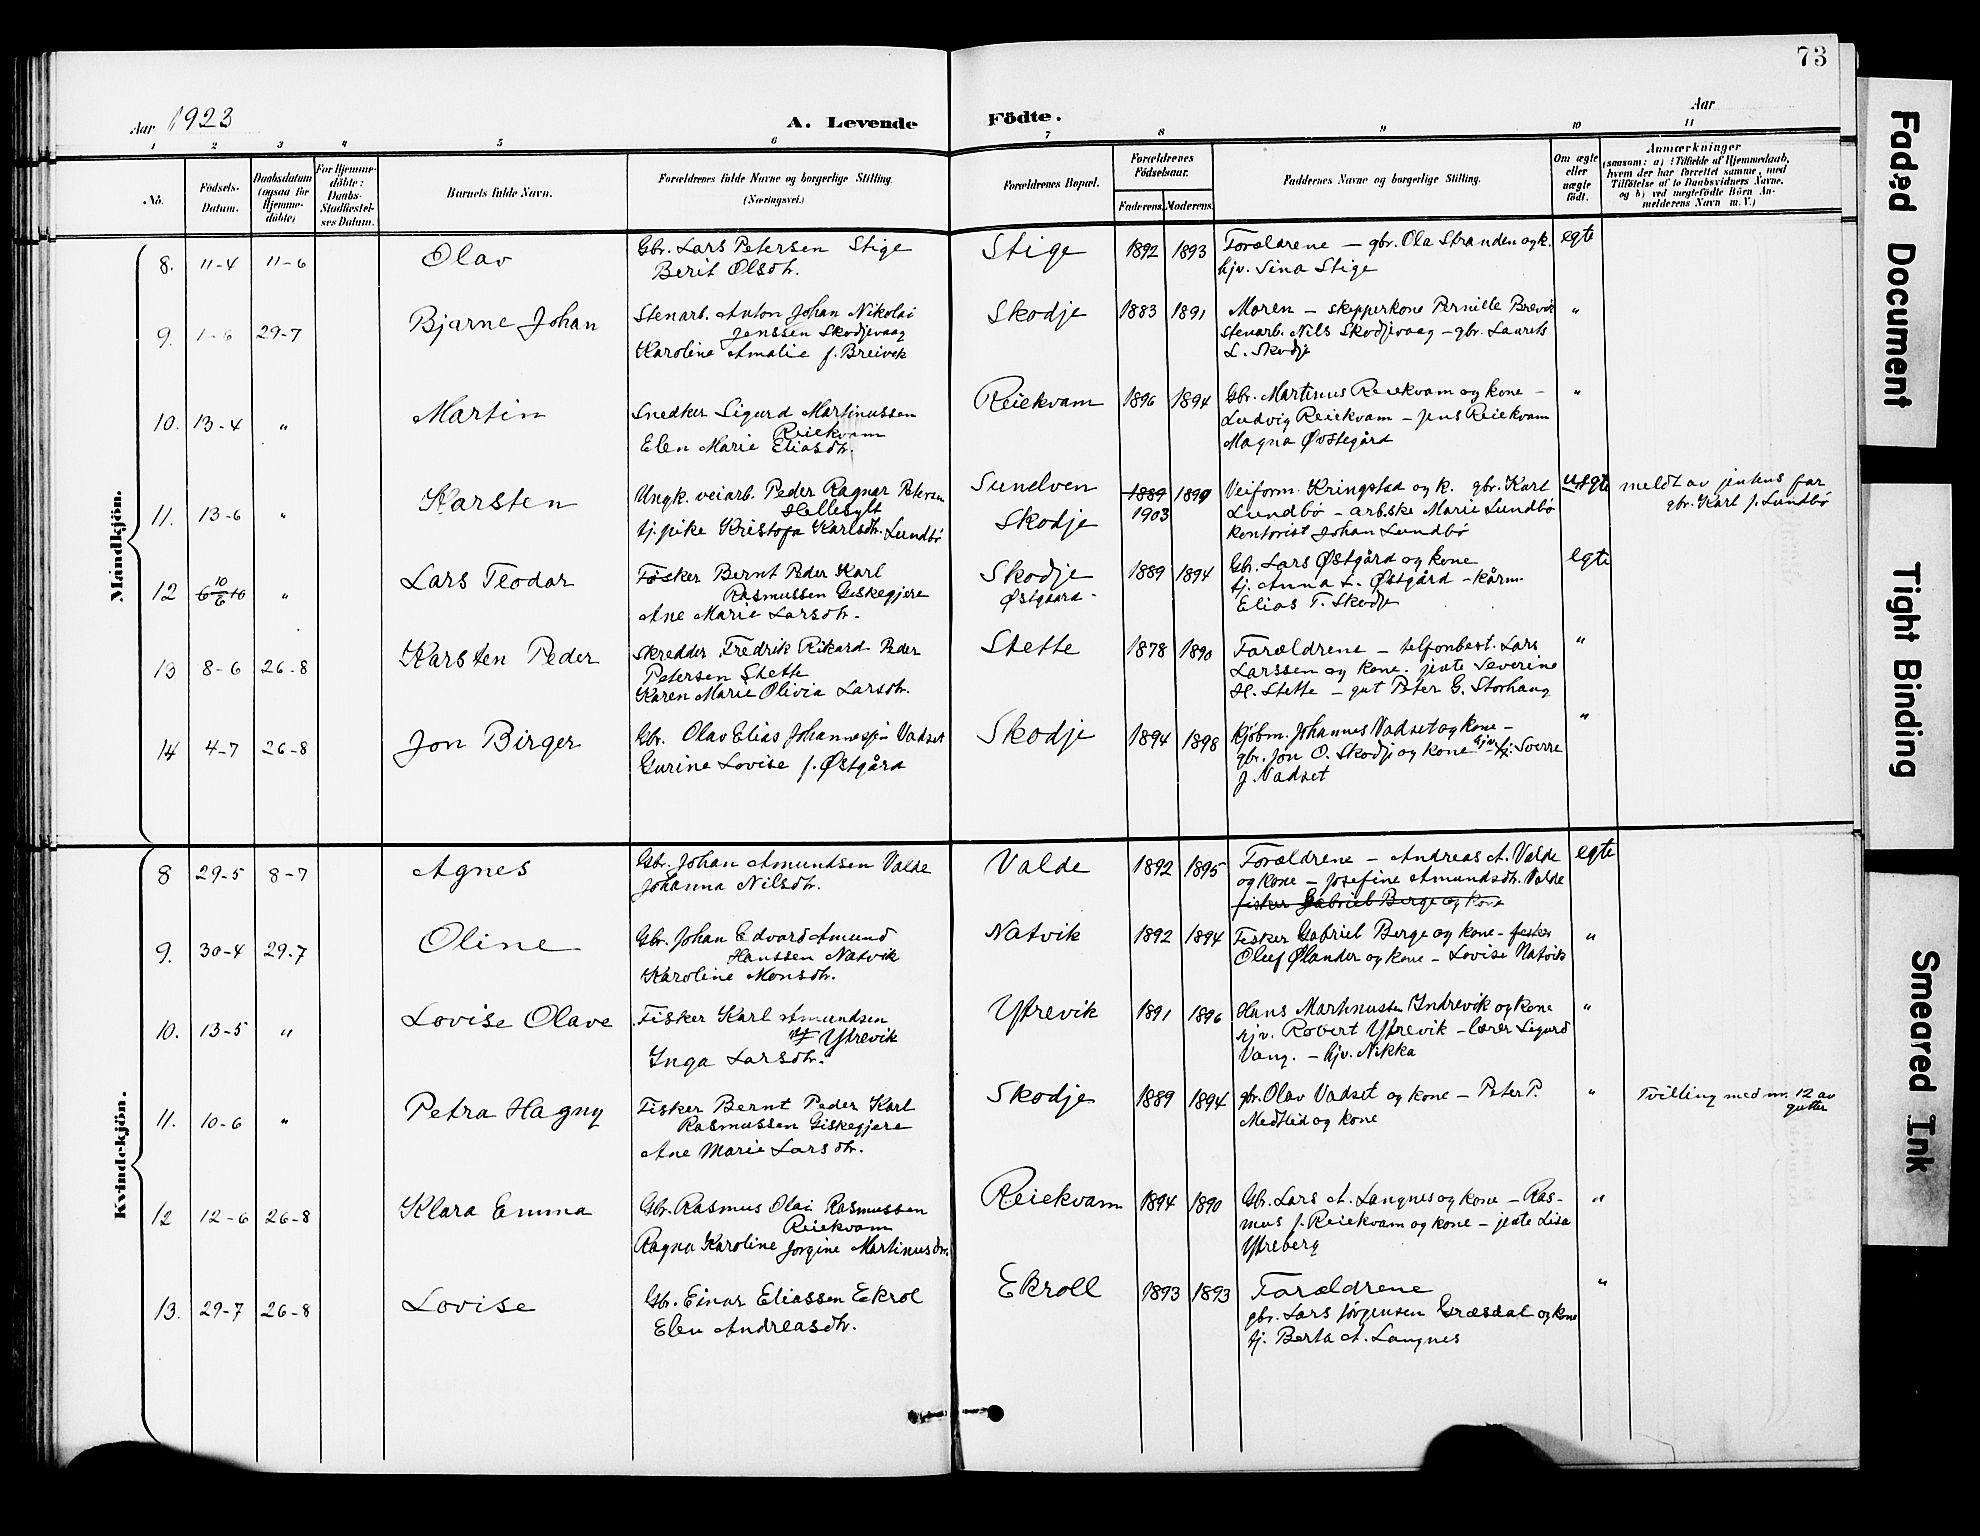 73
Aar 1923
A. Levende Födte.
Aar
1 2 3 4 5 6 7 8 9 10 11
No.
Födsels-Datum.
Daabsdatum (ogsaa for Hjemme-döbte)
For Hjemme-döbte: Daabs-Stadfæstel-ses Datum.
Barnets fulde Navn.
Forældrenes fulde Navne og borgerlige Stilling. (Næringsvei.)
Forældrenes Bopæl.
Forældrenes Födselsaar.
Faderens. Moderens.
Faddernes Navne og borgerlige Stilling.
Om ægte eller uægte födt.
Anmærkninger
(saasom: a) i Tilfælde af Hjemmedaab, hvem der har forrettet samme, med Tilföielse af to Daabsvidners Navne, og b) ved uægtefödte Börn An-melderens Navn m. V.)
Mandkjön.
8. 11-4 11-6 Olav
Gbr. Lars Petersen Stige
Berit Olsdtr.
Stige 1892 1893
Forældrene - gbr. Ola Stranden og k.
hjv. Sina Stige
egte
9. 1-6 29-7 Bjarne Johan
Stenarb. Anton Johan Nikolai
Jenssen Skodjevaag
Karoline Amalie f. Breivik
Skodje 1883 1891
Moren - skepperkone Pernille Brevik
stenarb. Nils Skodjevaag - gbr. Laurits
L. Skodje
"
10. 13-4 " Martin
Snedker Sigurd Martinussen
Reiekvam
Elen Marie Eliasdtr.
Reiekvam 1896 1894
Gbr. Martinus Reiekvam og kone -
Ludvig Reiekvam - Jens Reiekvam
Magna Øvstegård
"
11. 13-6 " Karsten
Ungk. veiarb. Peder Ragnar Petersen
Hellesylt
tj. pike Kristofa Karlsdtr. Lundbø
Sunelven
Skodje
1889 1899
1903
Veiform. Kringstad og k. gbr. Karl
Lundbø - arbske Marie Lundbø
kontorist Johan Lundbø
uegte
meldt av jentens far
gbr. Karl J. Lundbø
12 10/6 " Lars Teodor
Fisker Bernt Peder Karl
Rasmussen Giskegjere
Ane Marie Larsdtr.
Skodje
Østgaard -
1889 1894
Gbr. Lars Østgård og kone
tj. Anna L. Østgård - kårm.
Elias T. Skodje
egte
13 8-6 26-8 Karsten Peder
Skredder Fredrik Rikard Peder
Petersen Stette
Karen Marie Olivia Larsdtr.
Stette 1878 1890
Forældrene - telfonbest. Lars
Larssen og kone. jente Severine
H. Stette - gut Peter G. Storhaug
"
14 4-7 26-8 Jon Birger
Gbr. Olav Elias Johannessen Vadset
Gurine Lovise f. Østgård
Skodje 1894 1898
Kjøbm. Johannes Vadset og kone -
gbr. Jon O. Skodje og kone hjv. Sverre
J. Vadset
"
Kvindekjön.
8 29-5 8-7 Agnes
Gbr. Johan Amundsen Valde
Johanna Nilsdtr.
Valde 1892 1895
Forældrene - Andreas A. Valde
og kone - Josefine Amundsdtr. Valde
fisker Gabriel Berge og kone
egte
9. 30-4 29-7 Oline
Gbr. Johan Edvard Amund
Hanssen Natvik
Karoline Monsdtr.
Natvik 1892 1894
Fisker Gabriel Berge og kone - fisker
Oluf Ølander og kone - Lovise Natvik
"
10. 13-5 " Lovise Olave
Fisker Karl Amundsen
Ytrevik
Inga Larsdtr.
Ytrevik 1891 1896
Hans Martinussen Indrevik og kone
hjv. Robert Ytrevik - lærer Sigurd
Vang. - hjv. Nikka
"
11. 10-6 " Petra Hagny
Fisker Bernt Peder Karl
Rasmussen Giskegjere
Ane Marie Larsdtr.
Skodje 1889 1894
gbr. Olav Vadset og kone - Peter P.
Medtlid og kone
"
Tvilling med nr. 12 av
gutter
12 12-6 26-8 Klara Emma
Gbr. Rasmus Olai Rasmussen
Reiekvam
Ragna Karoline Jorgine Martinusdtr.
Reiekvam 1894 1890
Gbr. Lars A. Langnes og kone - Ras-
mus J. Reiekvam og kone - jente Lisa
Ytreberg
"
13. 29-7 26-8 Lovise
Gbr. Einar Eliassen Ekrol
Elen Andreasdtr.
Ekroll 1893 1893
Forældrene
gbr. Lars Jørgensen Græsdal og kone
tj. Berta A. Langnes
"
Faded Document
Tight Binding
Smeared Ink